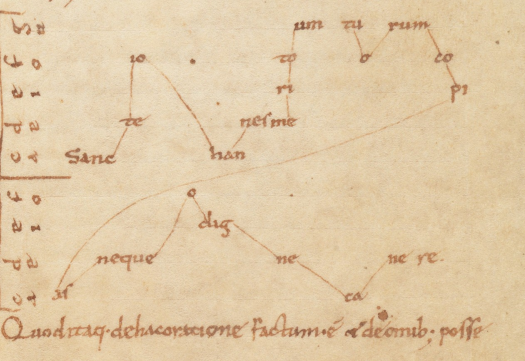 G u um tu rum
f o io to o co
e i ri pi
d e te nesme
c a Sanc han
f o o
e i dig
d e neque ne ne re.
c a as ca
Quod itaq; de hac oratione factum · ē & de omib; posse